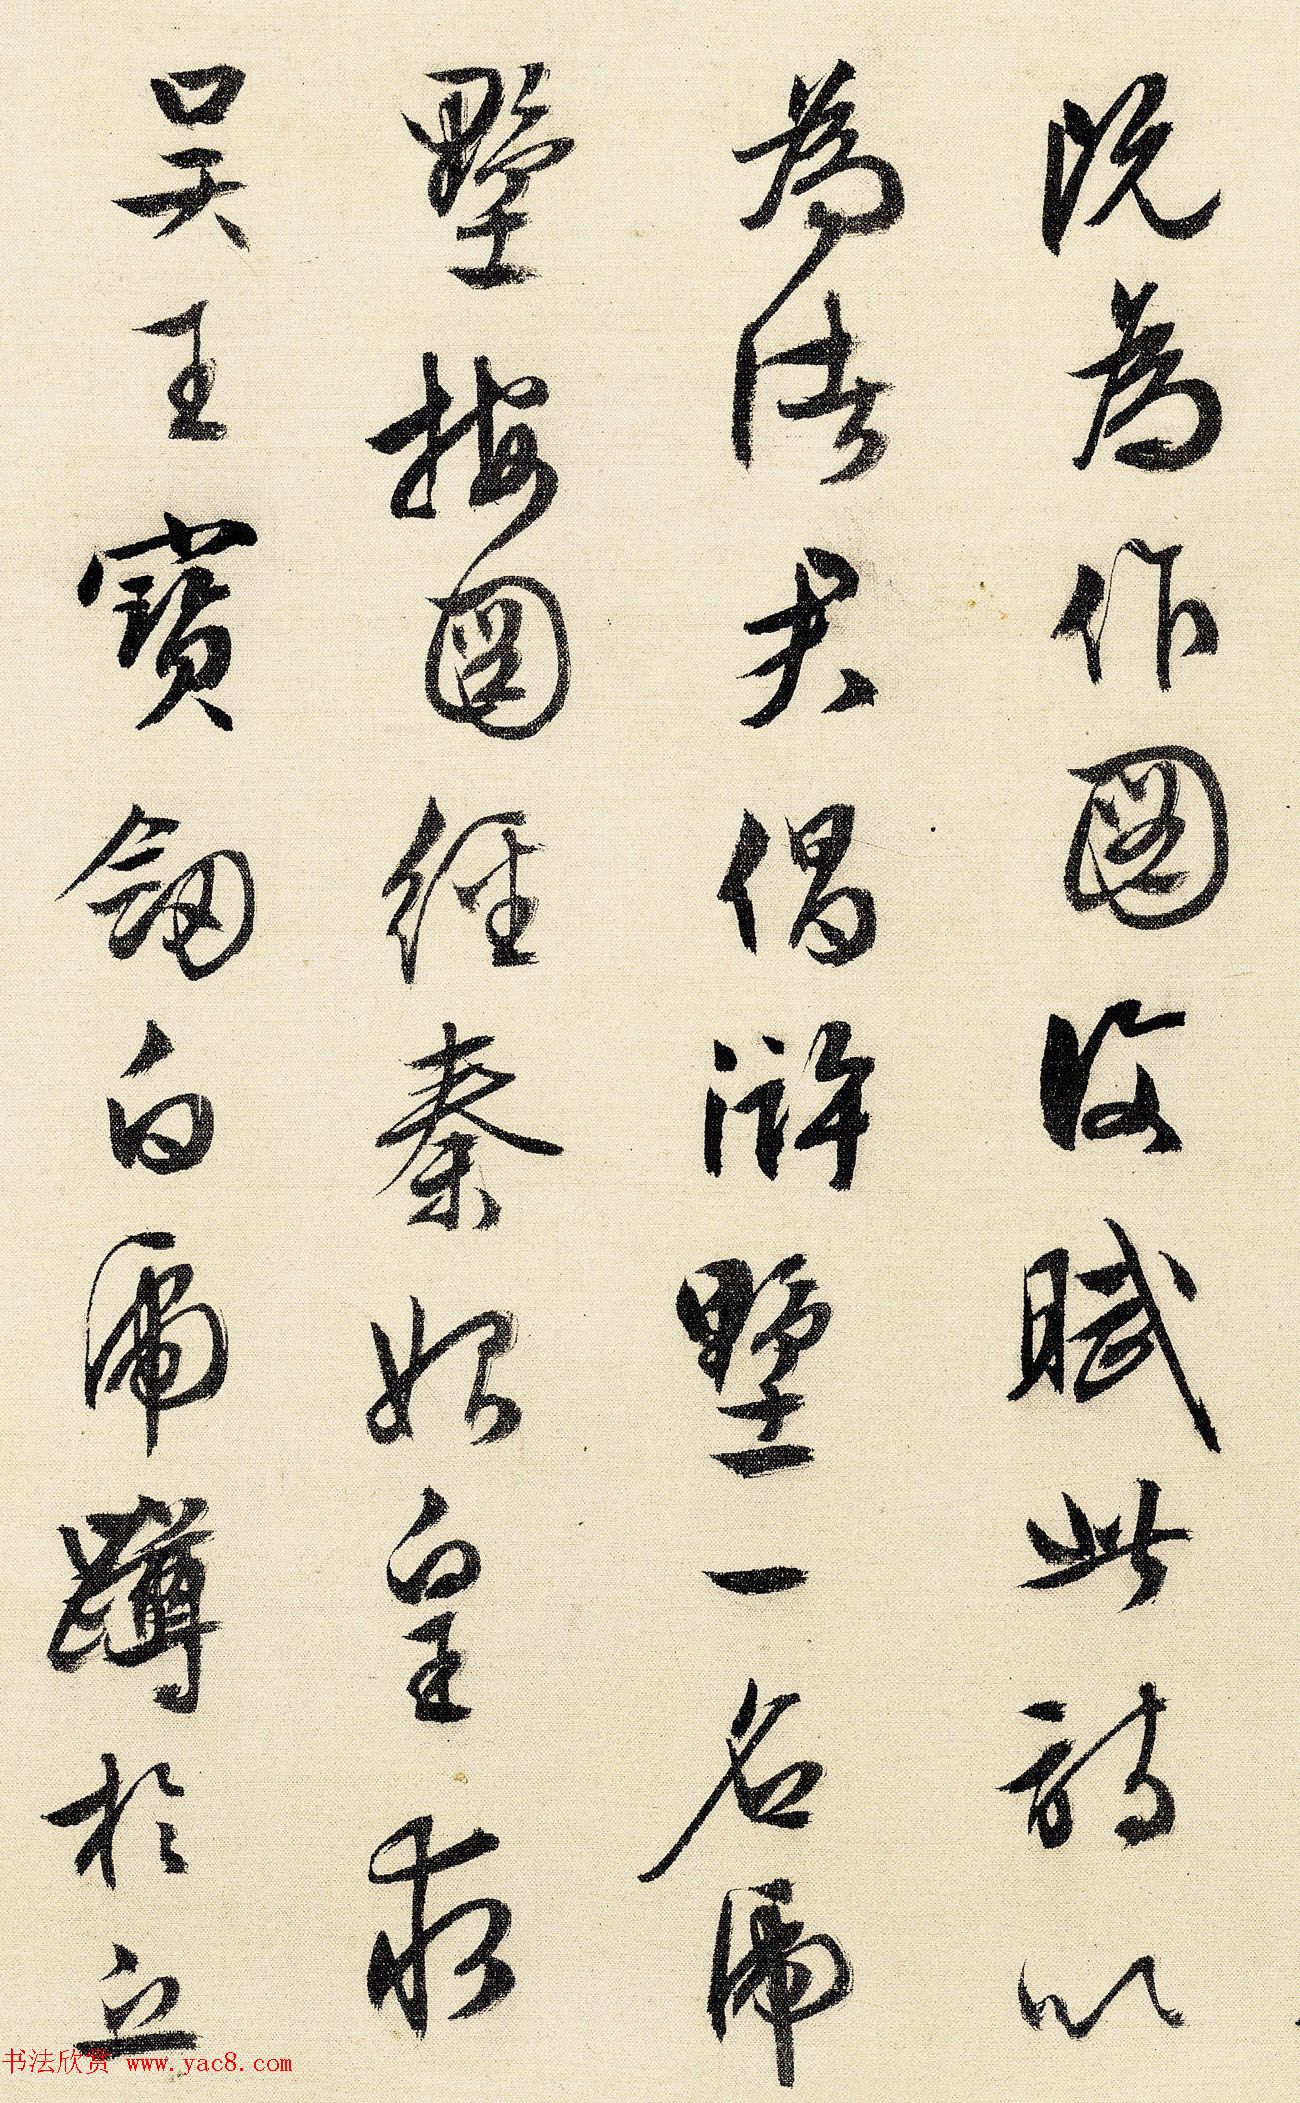 既為作圖復賦此詩以
為諸君倡滸墅一名虎
墅按圖經秦始皇求
吳王寶劍白虎蹲於丘
书法欣赏 www.yac8.com